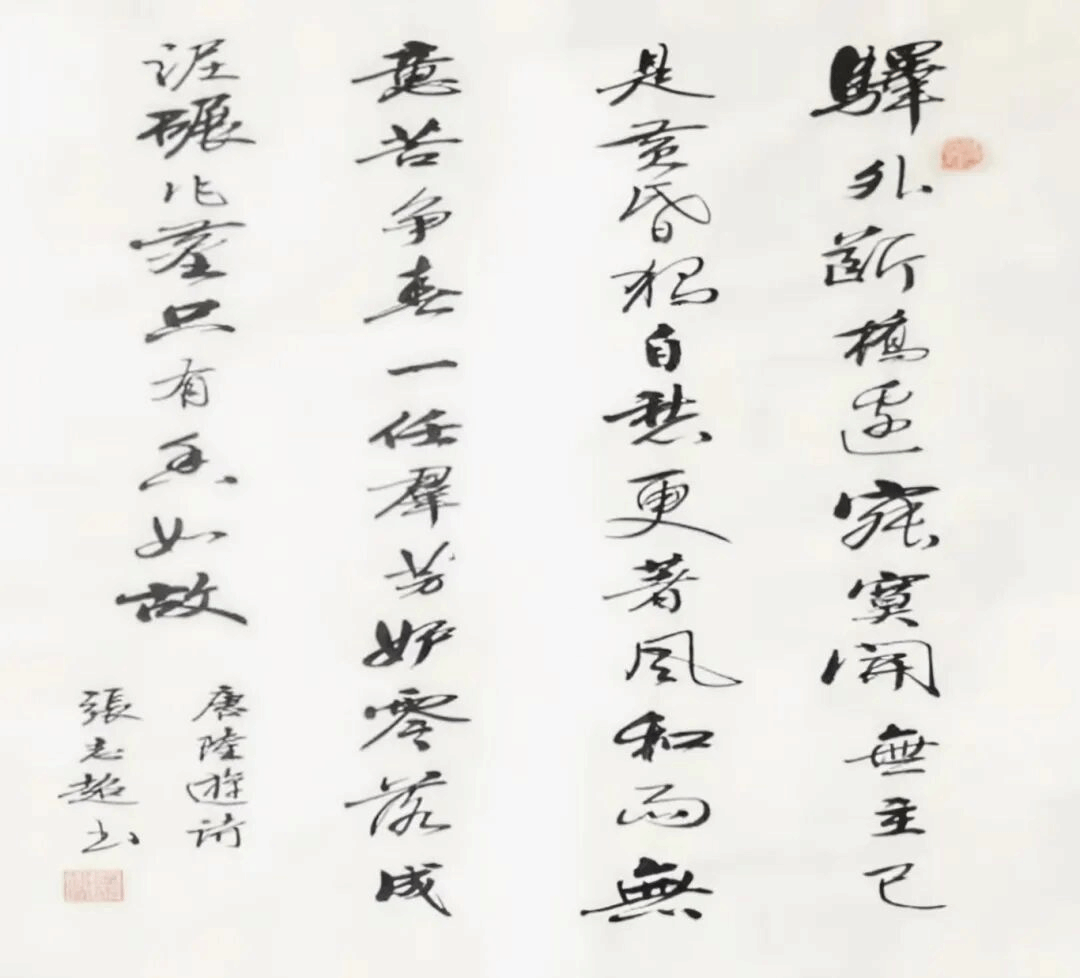 驛外斷橋邊寂寞開無主已
是黄昏獨自愁更著風和雨無
意苦争春一任羣芳妒零落成
泥碾作塵只有香如故
唐陸遊
張志超书